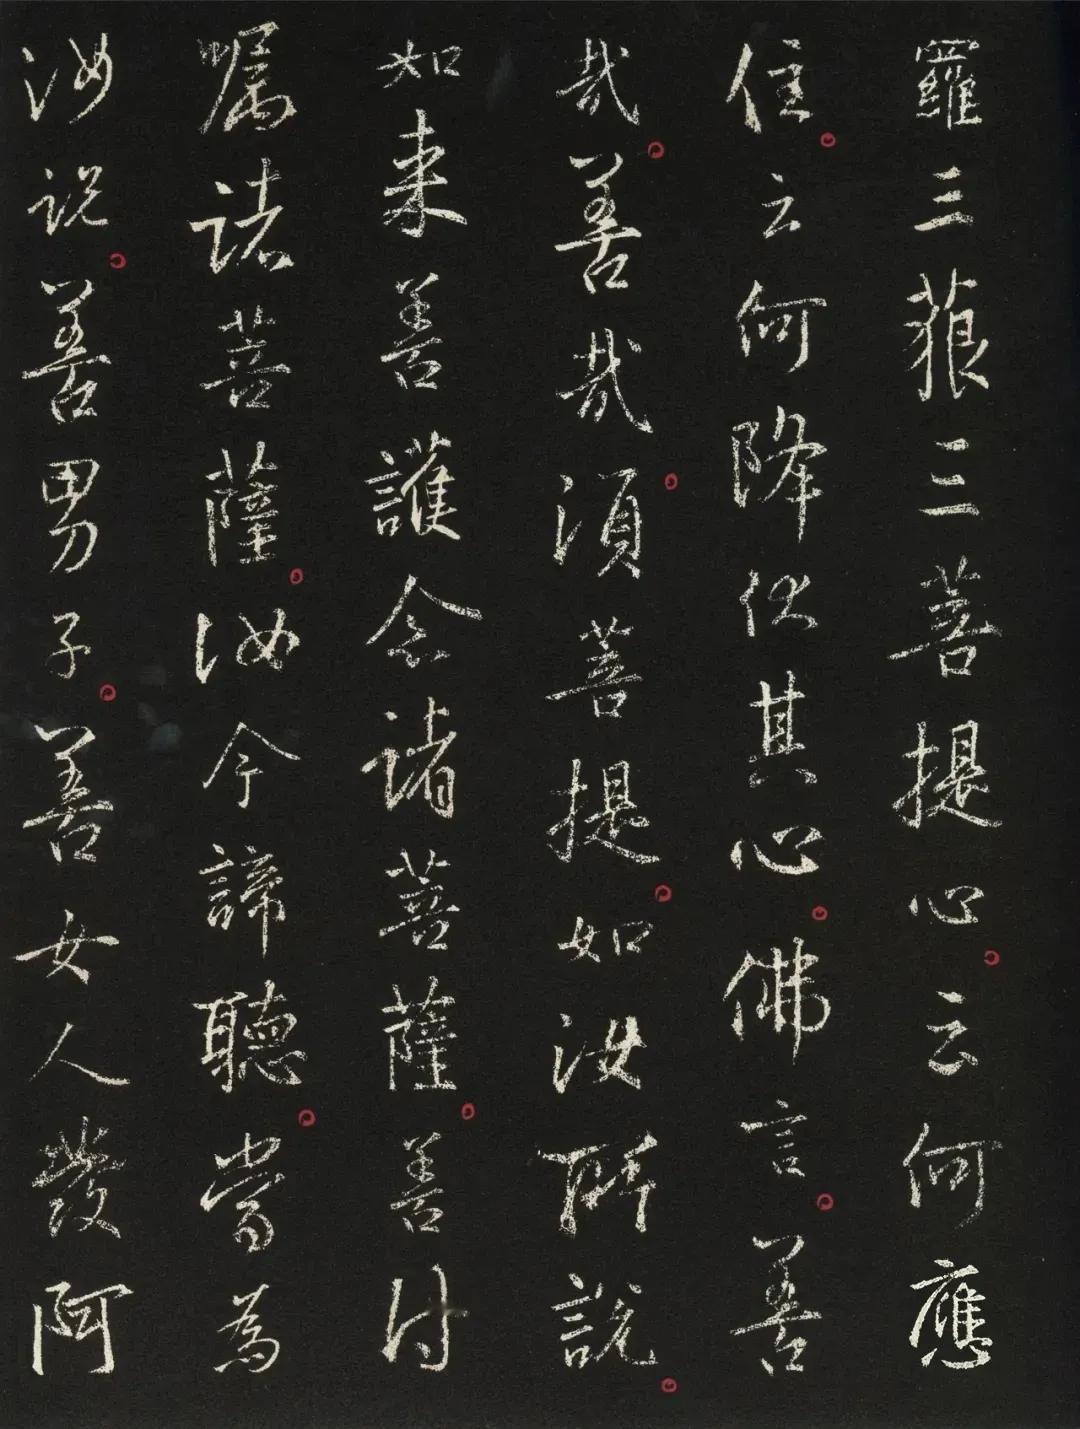 羅三藐三菩提心。云何應
住。云何降伏其心。佛言。善
哉。善哉。須菩提。如汝所說。
如来善護念諸菩薩。善付
嘱諸菩薩。汝今諦聽。當為
汝說。善男子。善女人發阿